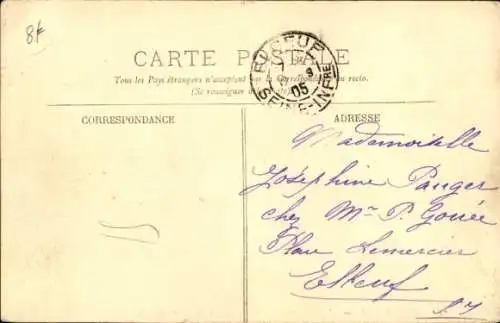 8f
CARTE POSTALE
Tous les Pays étrangers n'acceptent pas la Correspondance au recto.
(Se renseigner à la Poste).
ELBEUF
05
SEINE-INFRE
CORRESPONDANCE
ADRESSE
Mademoiselle
Joséphine Pauger
chez Mme P. Gouée
Place Lemercier
Elbeuf
S. I.